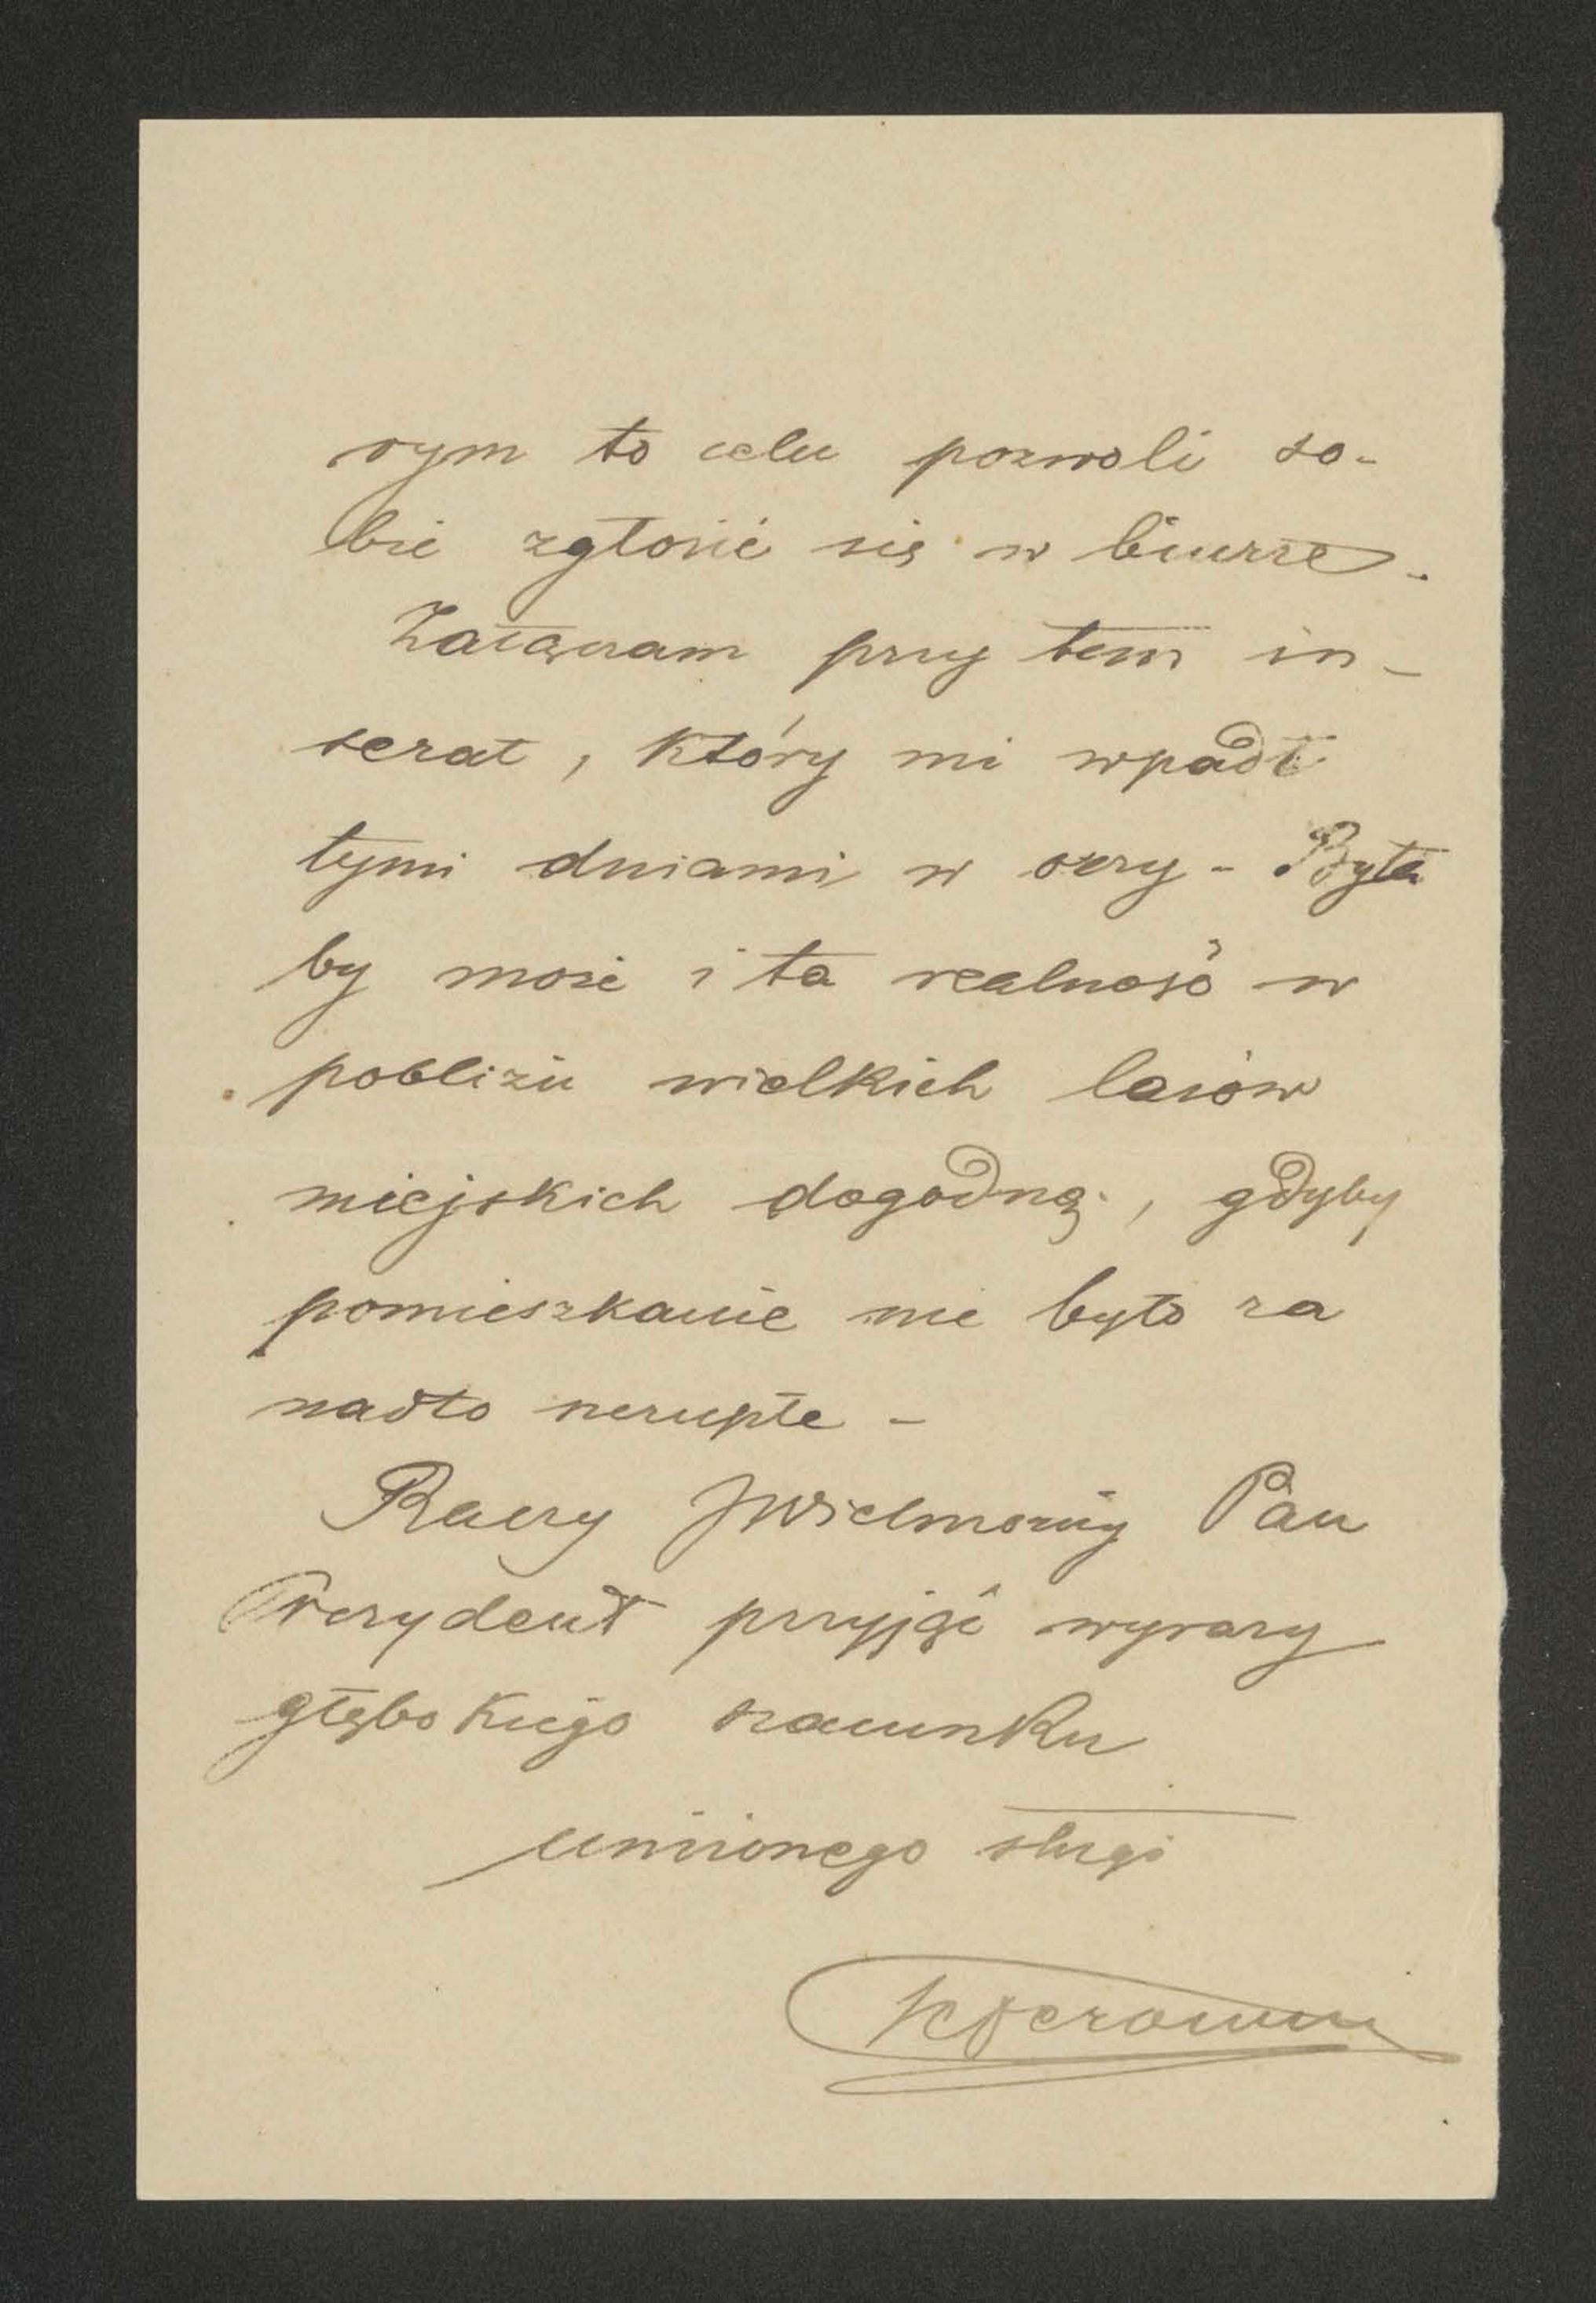 rym to celu pozwoli so-
bie zgłosić się w biurze.
Załączam przy tem in-
serat, który mi wpadł
tymi dniami w oczy - Była
by może i ta realność w
pobliżu wielkich lasów
miejskich dogodną, gdyby
pomieszkanie nie było za
nadto szczupłe -
Raczy JWielmożny Pan
Prezydent przyjąć wyrazy
głębokiego szacunku
uniżonego sługi